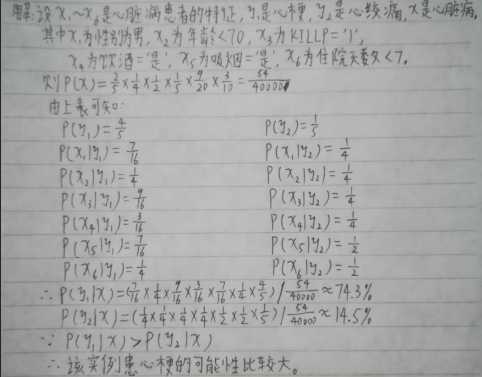 解:设x₁~x₆是心脏病患者的特征,y₁是心梗,y₂是心绞痛,x是心脏病,
其中x₁为性别为男,x₂为年龄<70,x₃为KILLP='1',
x₄为饮酒='是',x₅为吸烟='是',x₆为住院天数<7。
则P(x)=3/5×1/4×1/2×1/5×9/20×3/10=54/40000
由上表可知:
P(y₁)=4/5 P(y₂)=1/5
P(x₁|y₁)=7/16 P(x₁|y₂)=1/4
P(x₂|y₁)=1/4 P(x₂|y₂)=1/4
P(x₃|y₁)=9/16 P(x₃|y₂)=1/4
P(x₄|y₁)=3/16 P(x₄|y₂)=1/4
P(x₅|y₁)=7/16 P(x₅|y₂)=1/2
P(x₆|y₁)=1/4 P(x₆|y₂)=1/2
∴P(y₁|x)=(7/16×1/4×9/16×3/16×7/16×1/4×4/5)/54/40000≈74.3%
P(y₂|x)=(1/4×1/4×1/4×1/4×1/2×1/2×1/5)/54/40000≈14.5%
∵P(y₁|x)>P(y₂|x)
∴该实例患心梗的可能性比较大。